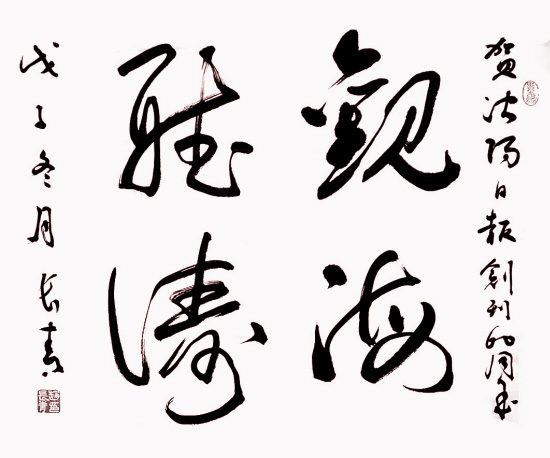 贺沈阳日报創刊60周年
觀海
聽濤
戊子冬月长青